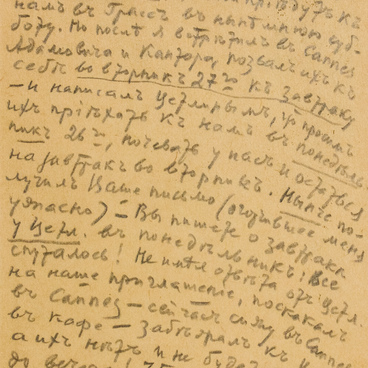 придутъ къ
намъ въ Грассъ въ нынѣшнюю суб-
боту. Но послѣ я встрѣтилъ въ Cannes
Адамовича и Кантора, позвалъ ихъ къ
себѣ во вторникъ 27го къ завтраку
– и написалъ Цетлинымъ, что просимъ
ихъ пріѣхать къ намъ въ понедѣль-
никъ 26го, ночевать у насъ и остаться
на завтракъ во вторникъ. Нынче по-
лучилъ Ваше письмо (огорчившее меня
ужасно) – Вы пишете о завтракѣ
у Цетл. въ понедѣльникъ! Все
спуталось! Не имѣя отвѣта отъ Цетл.
на наше приглашеніе, поскакалъ
въ Cannes – сейчасъ сижу въ Cannes
въ кафе – забѣгалъ къ
а ихъ нѣтъ и не будетъ
до вечера!